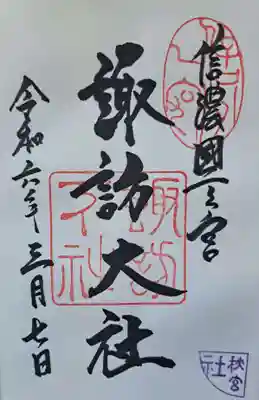 信濃國一之宮
諏訪大社
令和六年三月七日
秋宮
社